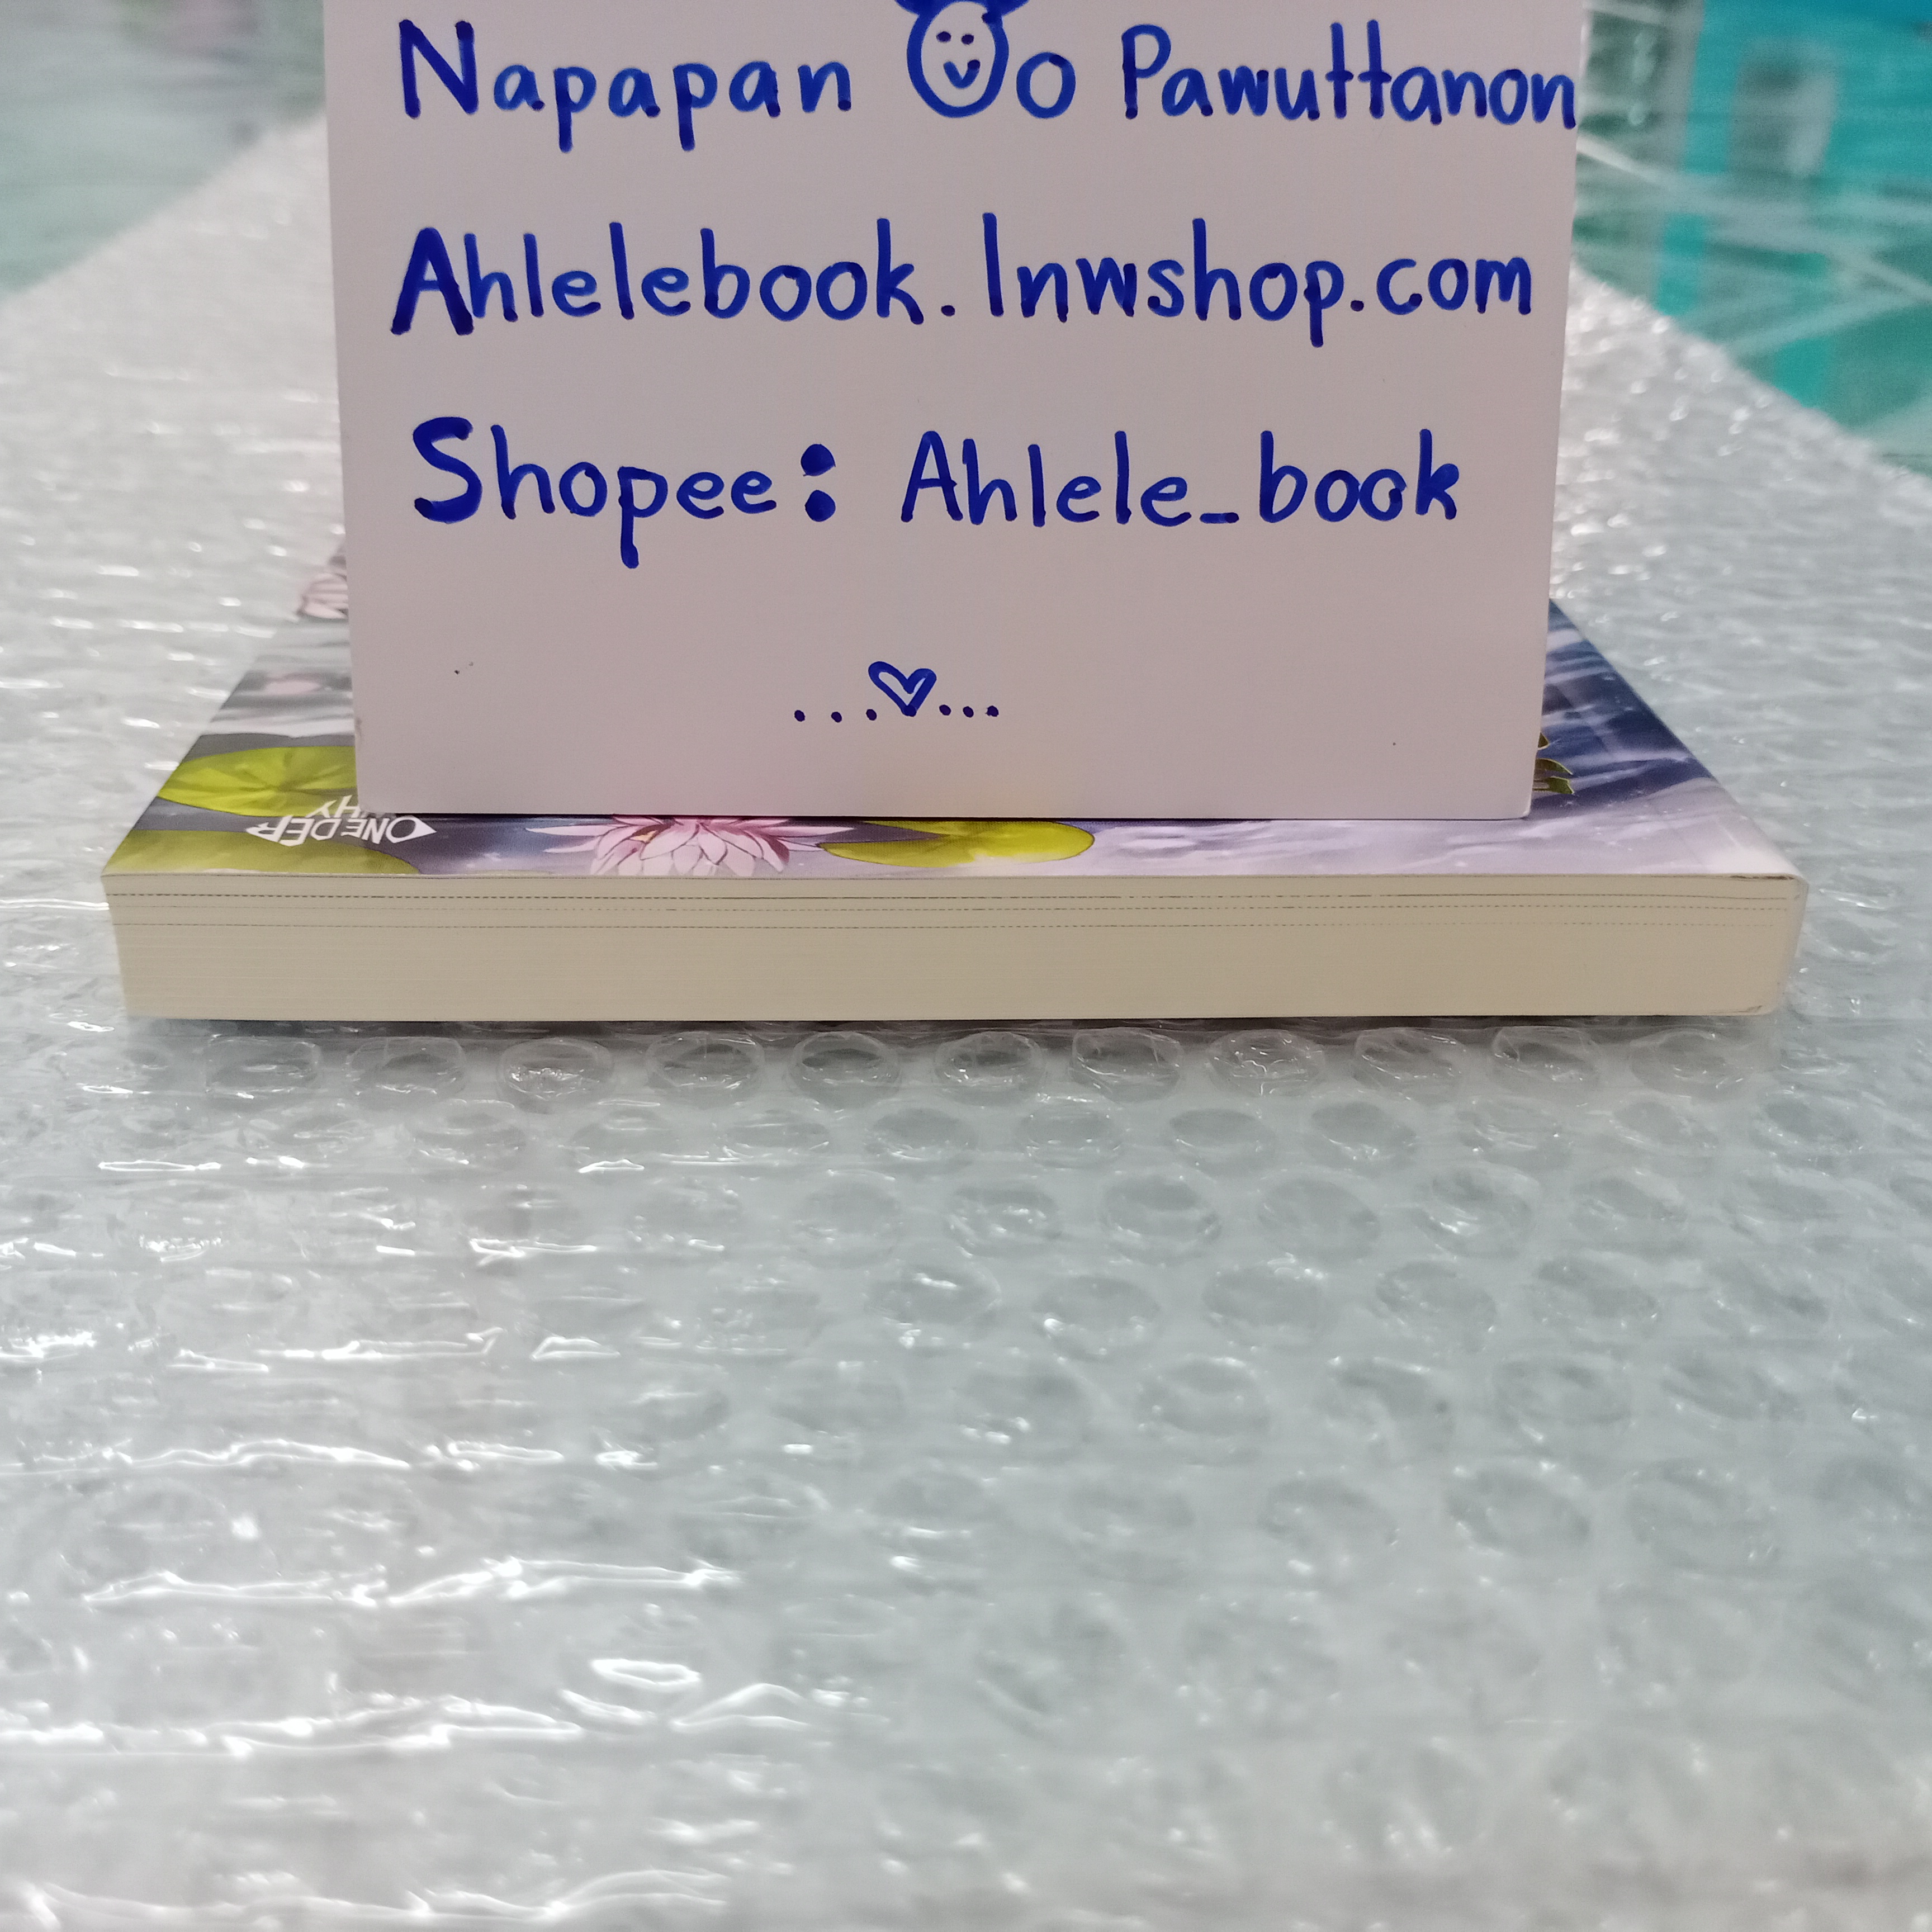 Napapan Jo Pawuttanon
Ahlelebook.lnwshop.com
Shopee: Ahlele_book
...♡...
ONEDER